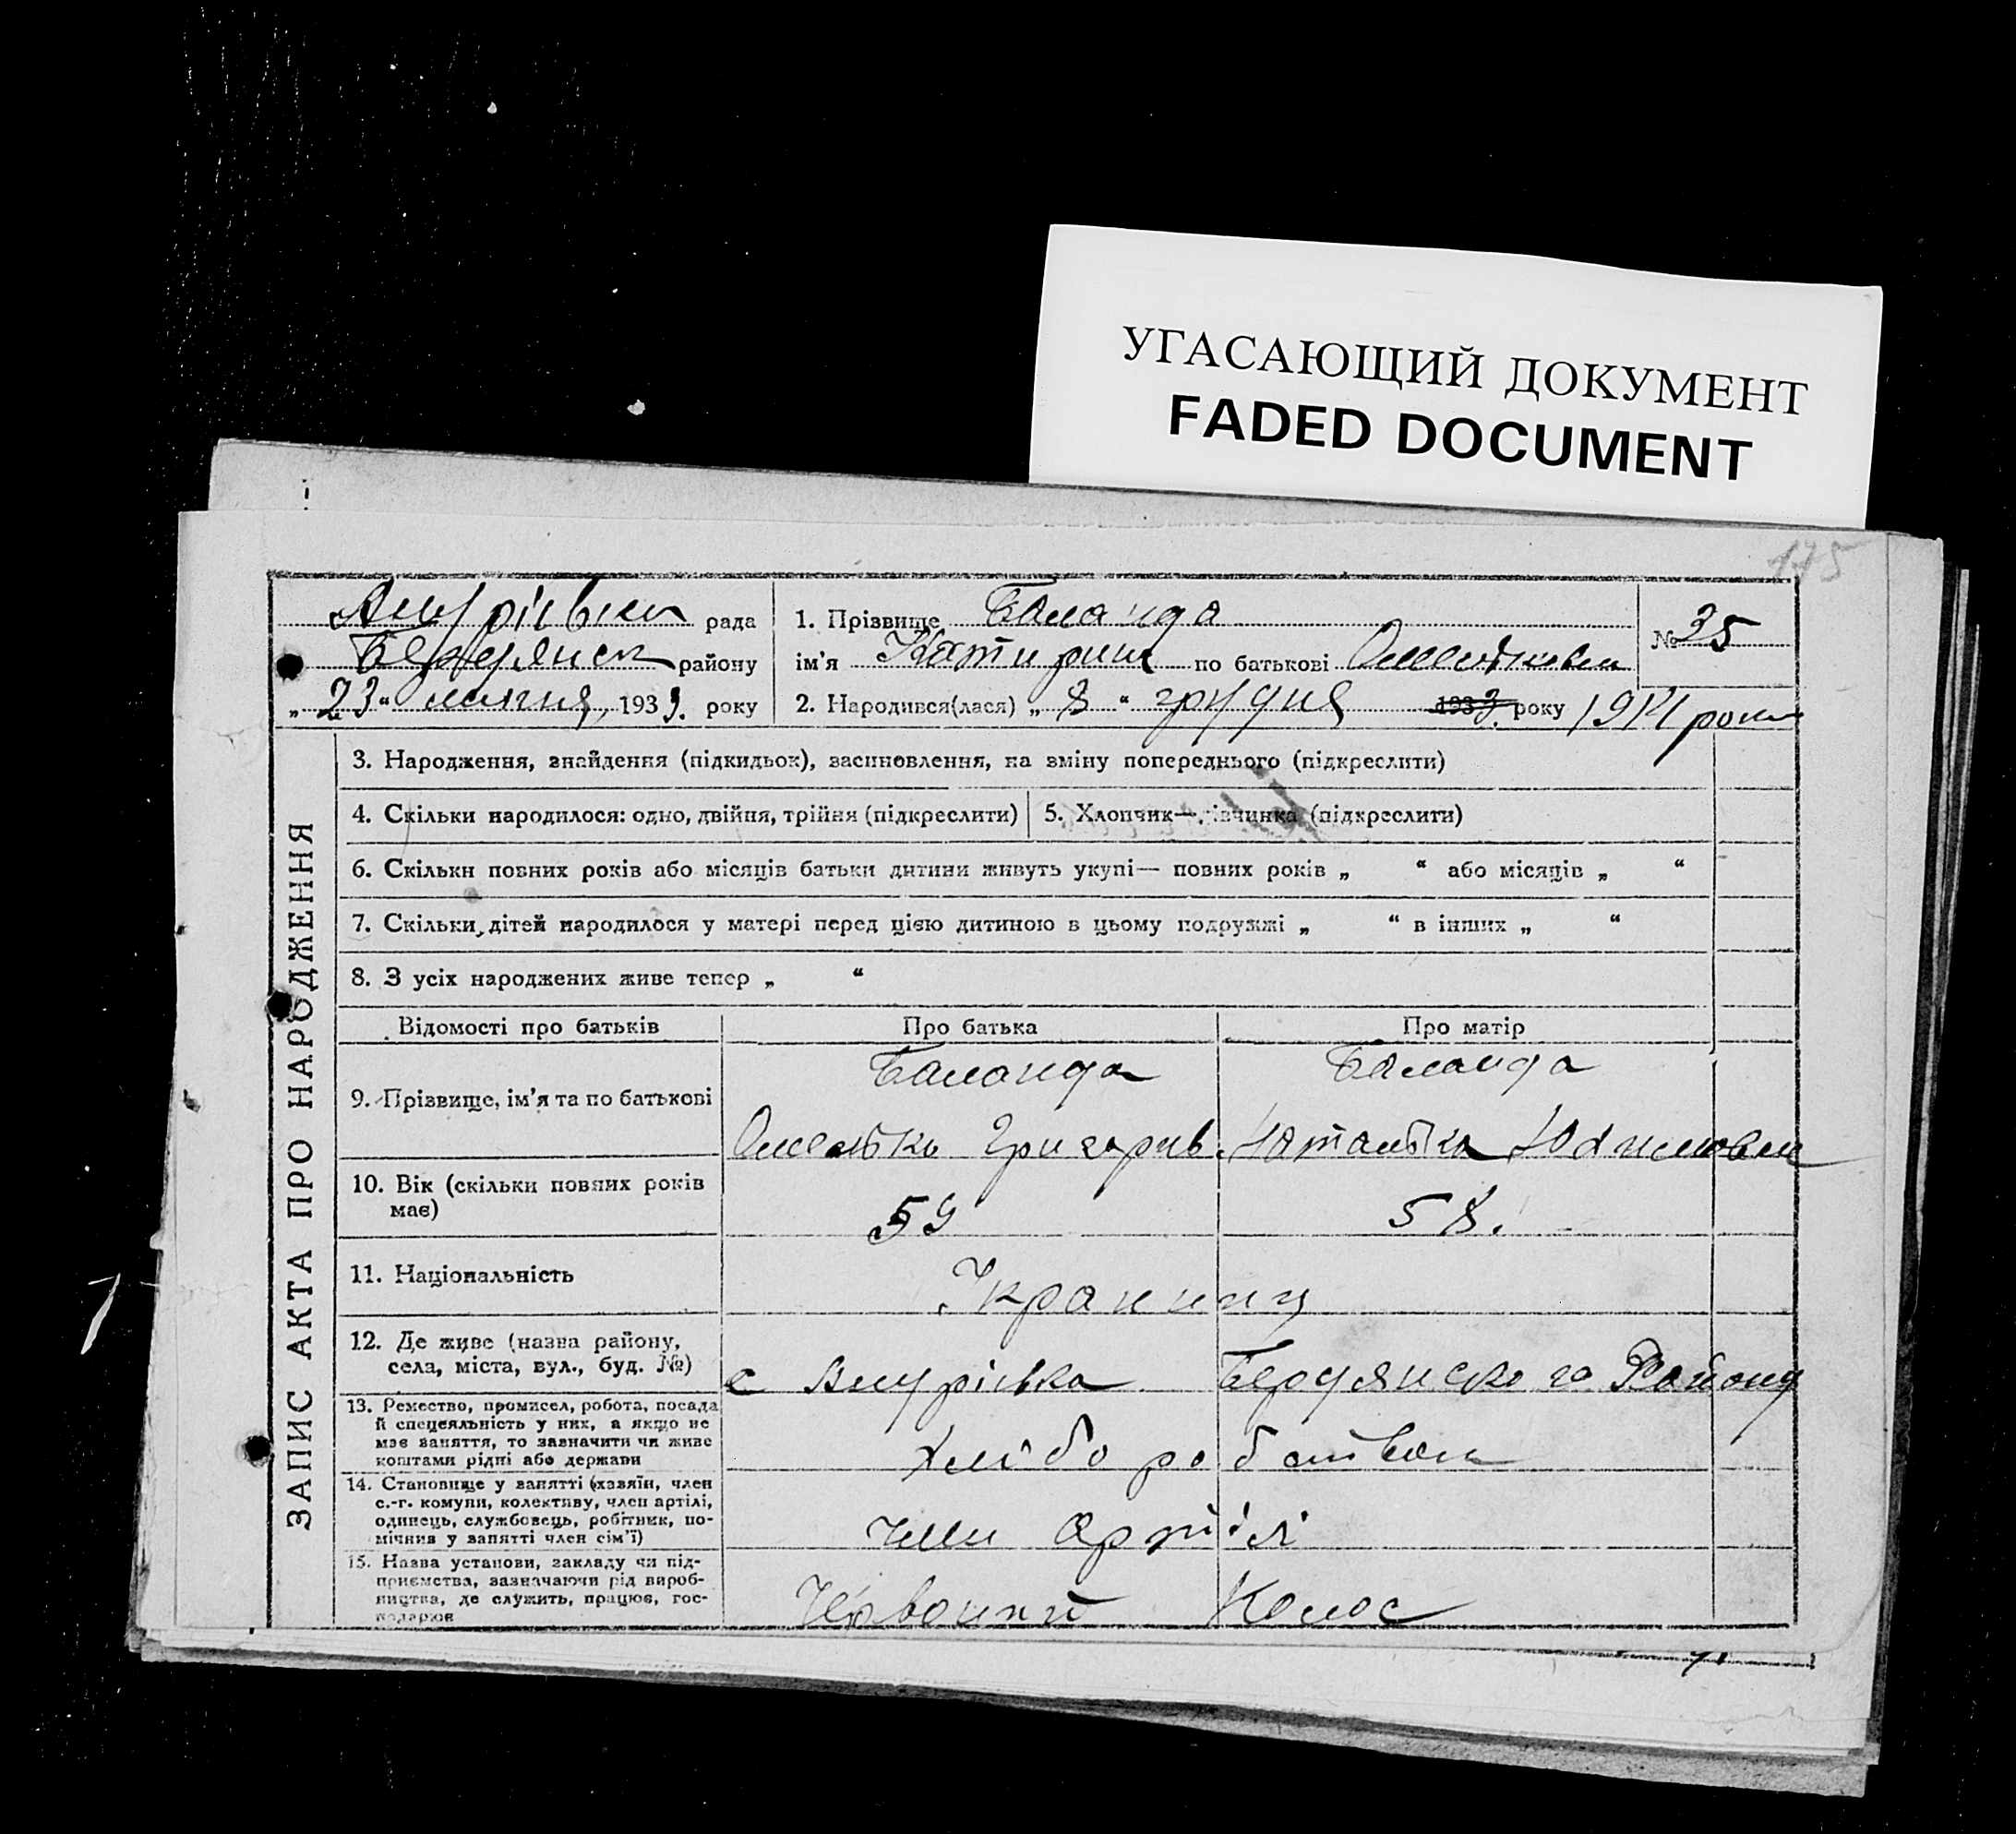 УГАСАЮЩИЙ ДОКУМЕНТ
FADED DOCUMENT
175
рада
Бердянськ району
„23“ липня, 1933. року
1. Прізвище Баланда
ім'я Катирина по батькові
2. Народився(лася) „8“ грудня 1933. року 1914 року
№ 35
ЗАПИС АКТА ПРО НАРОДЖЕННЯ
3. Народження, знайдення (підкидьок), засиновлення, на зміну попереднього (підкреслити)
4. Скільки народилося: одно, двійня, трійня (підкреслити)
5. Хлопчик— дівчинка (підкреслити)
6. Скільки повних років або місяців батьки дитини живуть укупі— повних років „ “ або місяців „ “
7. Скільки дітей народилося у матері перед цією дитиною в цьому подружжі „ “ в інших „ “
8. З усіх народжених живе тепер „ “
Відомості про батьків
Про батька
Про матір
9. Прізвище, ім'я та по батькові
Баланда
Баланда
Омелько Григорів.
Наталка
10. Вік (скільки повних років
має)
59
58.
11. Національність
Українці
12. Де живе (назва району,
села, міста, вул., буд. №)
с Бердянського Району
13. Ремество, промисел, робота, посада
й спеціяльність у них, а якщо не
має заняття, то зазначити чи живе
коштами рідні або держави
Хліборобством
14. Становище у занятті (хазяїн, член
с.-г. комуни, колективу, член артілі,
одинець, службовець, робітник, по-
мічник у занятті член сім'ї)
член Артілі
15. Назва установи, закладу чи під-
приємства, зазначаючи рід вироб-
ництва, де служить, працює, гос-
подарює
Червоний Колос